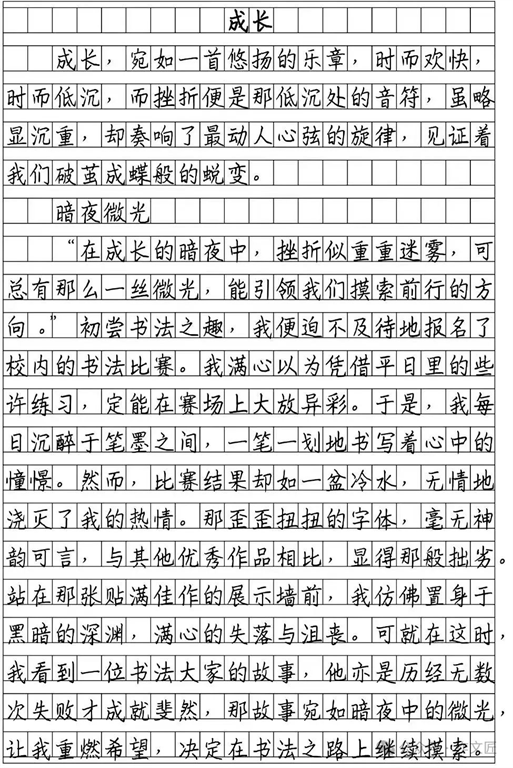 成长
成长，宛如一首悠扬的乐章，时而欢快，
时而低沉，而挫折便是那低沉处的音符，虽略
显沉重，却奏响了最动人心弦的旋律，见证着
我们破茧成蝶般的蜕变。
暗夜微光
“在成长的暗夜中，挫折似重重迷雾，可
总有那么一丝微光，能引领我们摸索前行的方
向。”初尝书法之趣，我便迫不及待地报名了
校内的书法比赛。我满心以为凭借平日里的些
许练习，定能在赛场上大放异彩。于是，我每
日沉醉于笔墨之间，一笔一划地书写着心中的
憧憬。然而，比赛结果却如一盆冷水，无情地
浇灭了我的热情。那歪歪扭扭的字体，毫无神
韵可言，与其他优秀作品相比，显得那般拙劣。
站在那张贴满佳作的展示墙前，我仿佛置身于
黑暗的深渊，满心的失落与沮丧。可就在这时，
我看到一位书法大家的故事，他亦是历经无数
次失败才成就斐然，那故事宛如暗夜中的微光，
让我重燃希望，决定在书法之路上继续摸索。